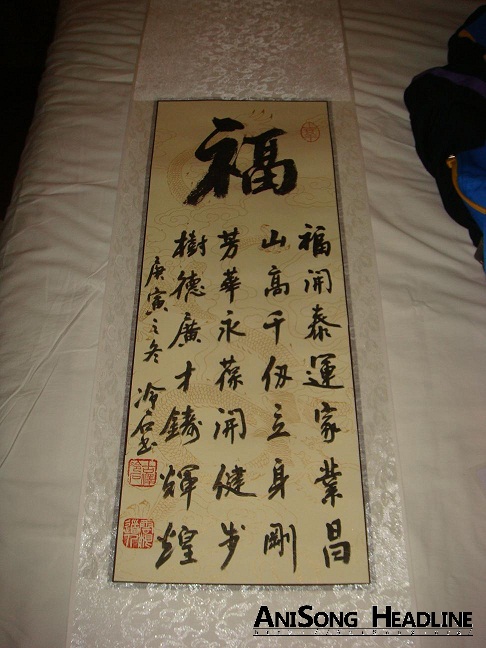 福
福開泰運家業昌
山高千仞立身剛
芳華永葆開健步
樹德廣才鑄輝煌
庚寅之冬 冷石書
AniSong Headline